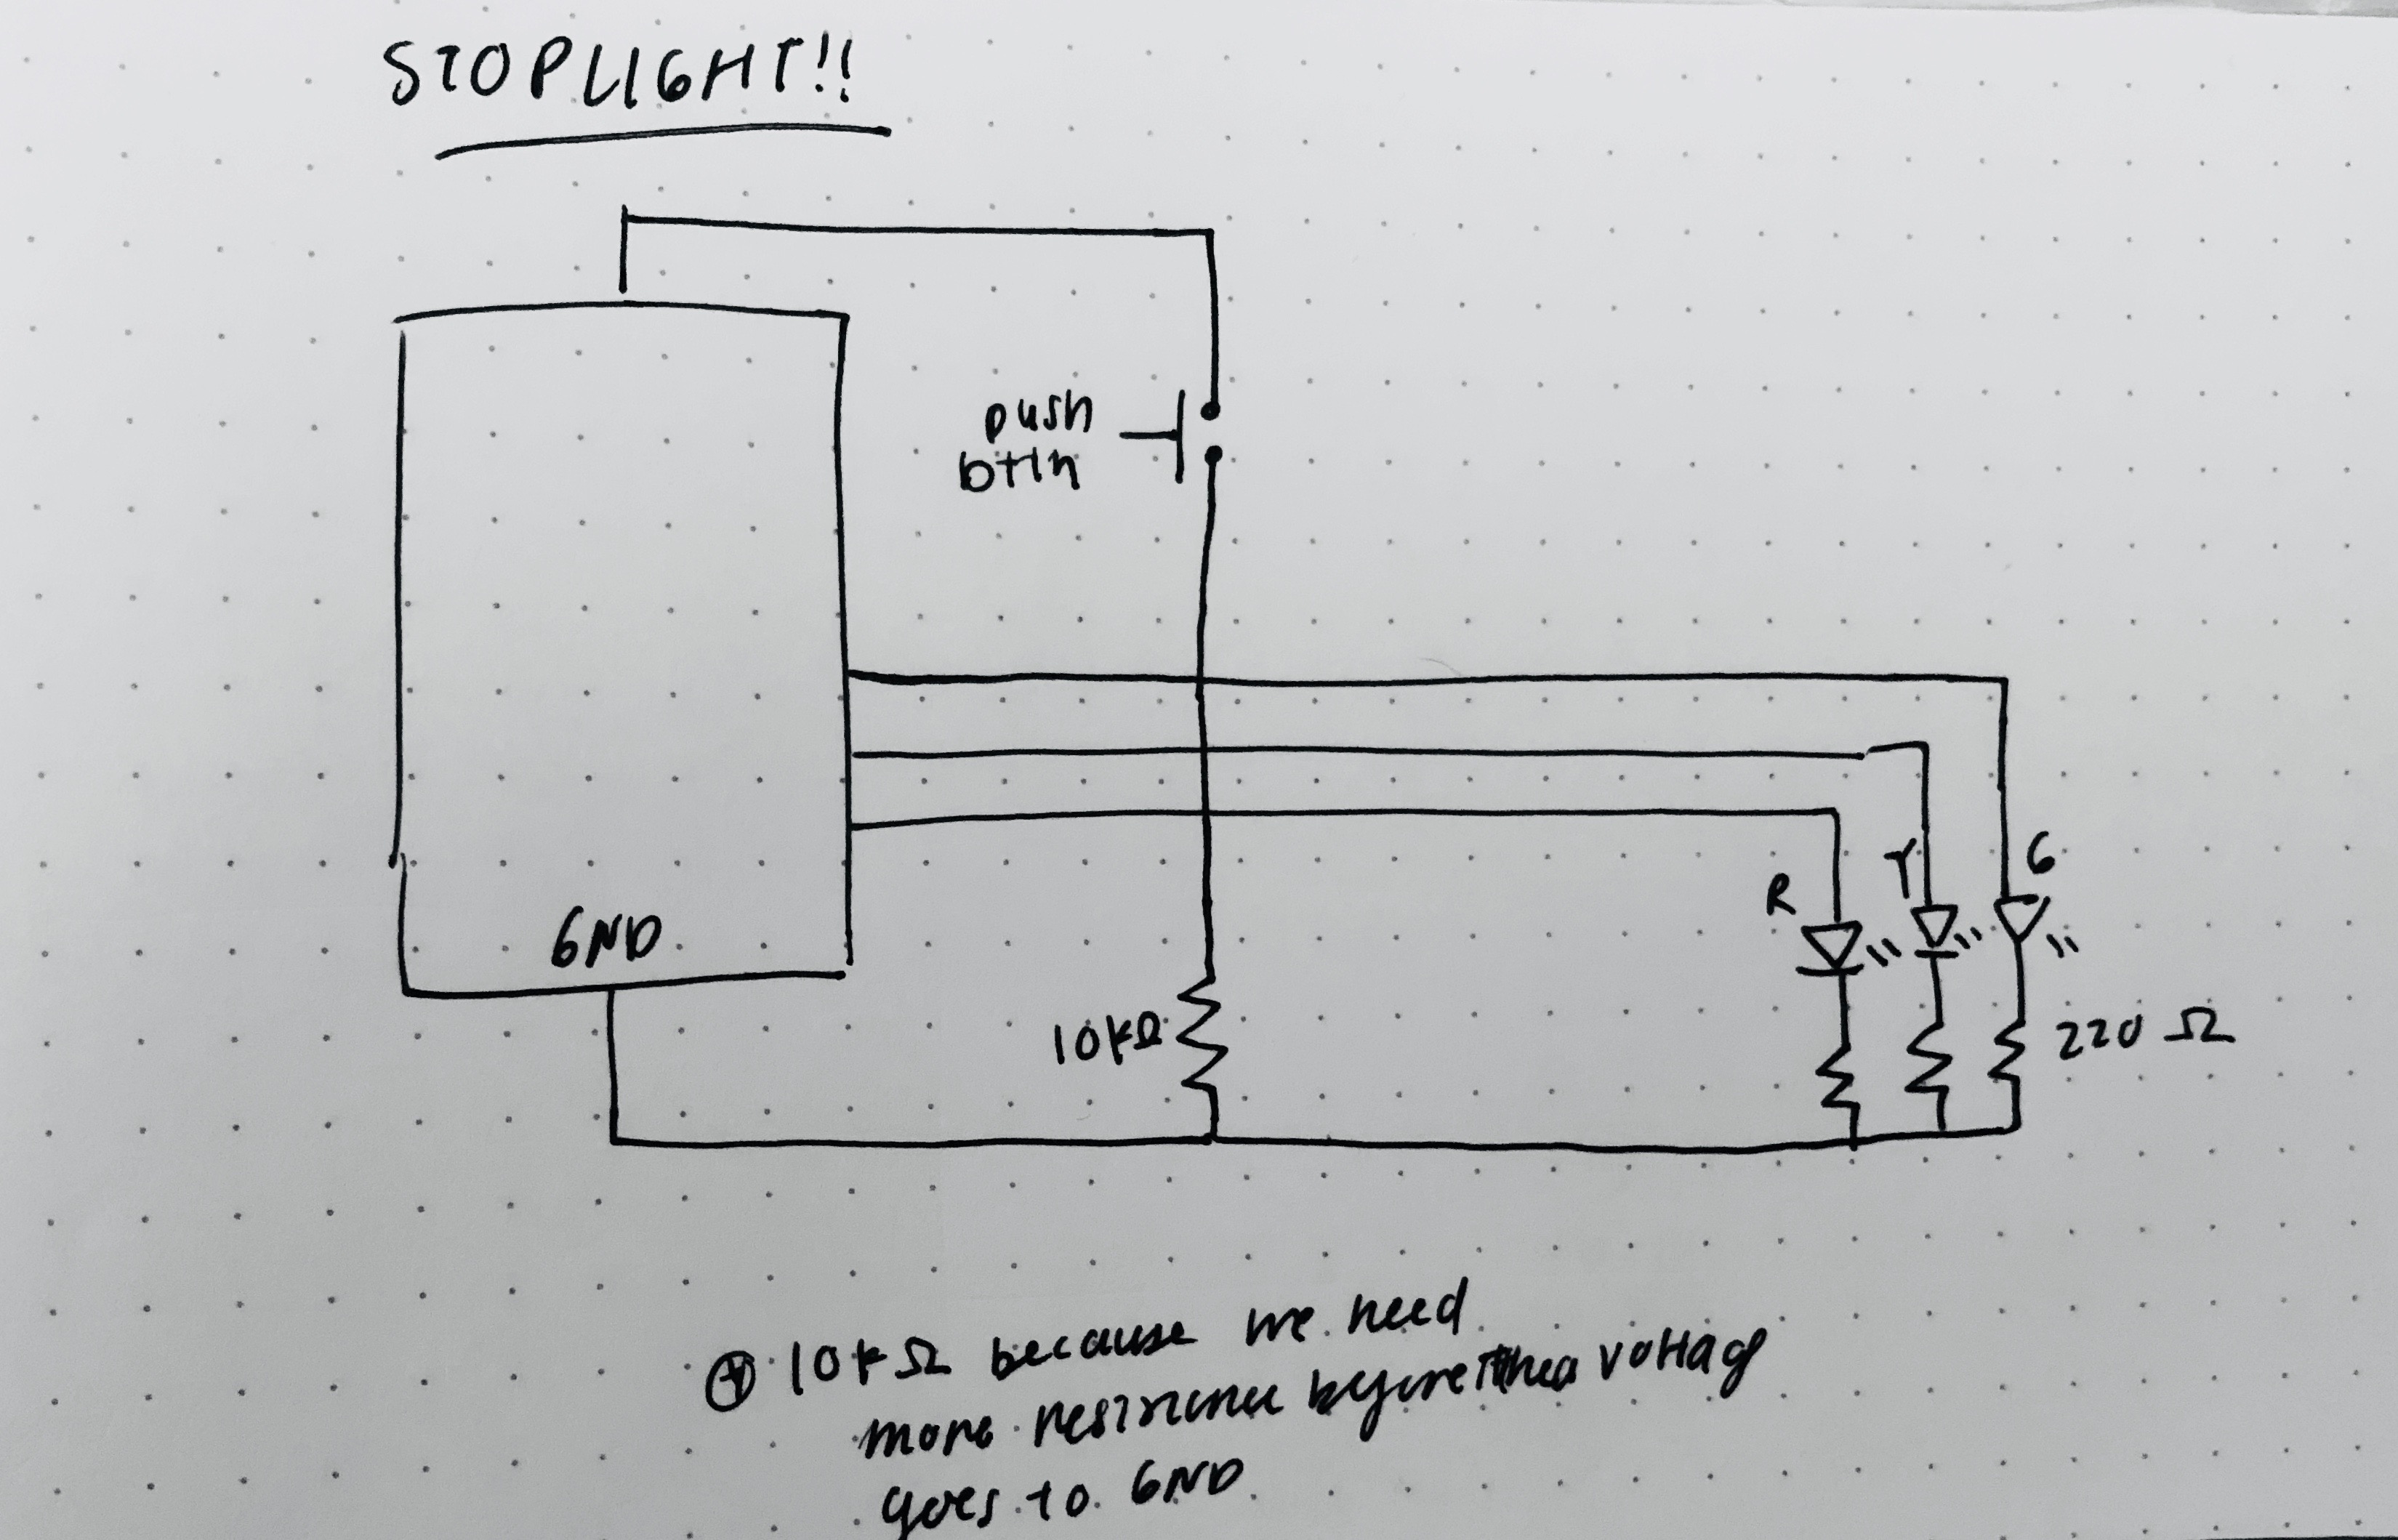 STOPLIGHT!!
push
bttn
GND
R
Y
G
10kΩ
220 Ω
10kΩ because we need
more resistance before the voltage
goes to GND